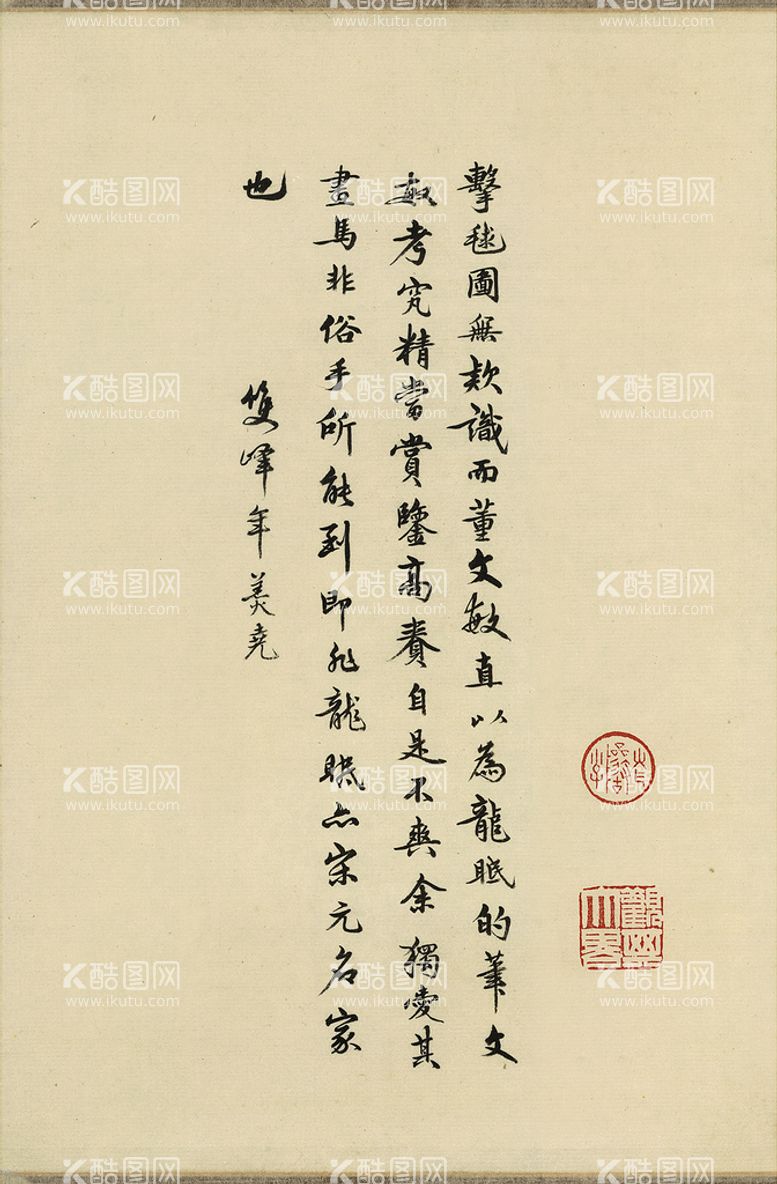 擊毬圖無款識而董文敏直以為龍眠的筆文
敏考究精當賞鑒高賽自是不爽余獨愛其
畫馬非俗手所能到即非龍眠亦宋元名家
也
雙峰年羹堯
K酷图网
www.ikutu.com